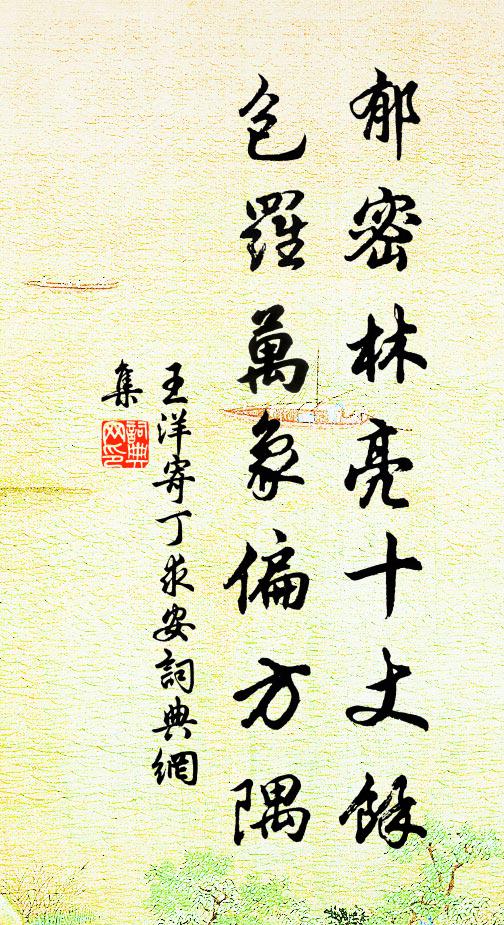 郁密林亮十丈餘
包羅萬象偏方隅
王洋寄丁求安詞典網
集
詞典
网印